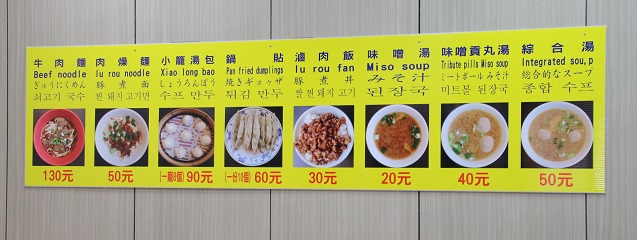 牛肉麵
Beef noodle
ぎゅうにくめん
쇠고기 국수
130元
肉燥麵
lu rou noodle
豚煮面
쌀 돼지고기면
50元
小籠湯包
Xiao long bao
しょうろんぽう
수프 만두
(一籠8個) 90元
鍋貼
Pan fried dumplings
焼きギョウザ
튀김 만두
(一份10個) 60元
滷肉飯
lu rou fan
豚煮丼
쌀 찐 돼지 고기
30元
味噌湯
Miso soup
みそ汁
된장국
20元
味噌貢丸湯
Tribute pills Miso soup
ミートボールみそ汁
미트볼 된장국
40元
綜合湯
Integrated sou,p
総合的なスープ
종합 수프
50元